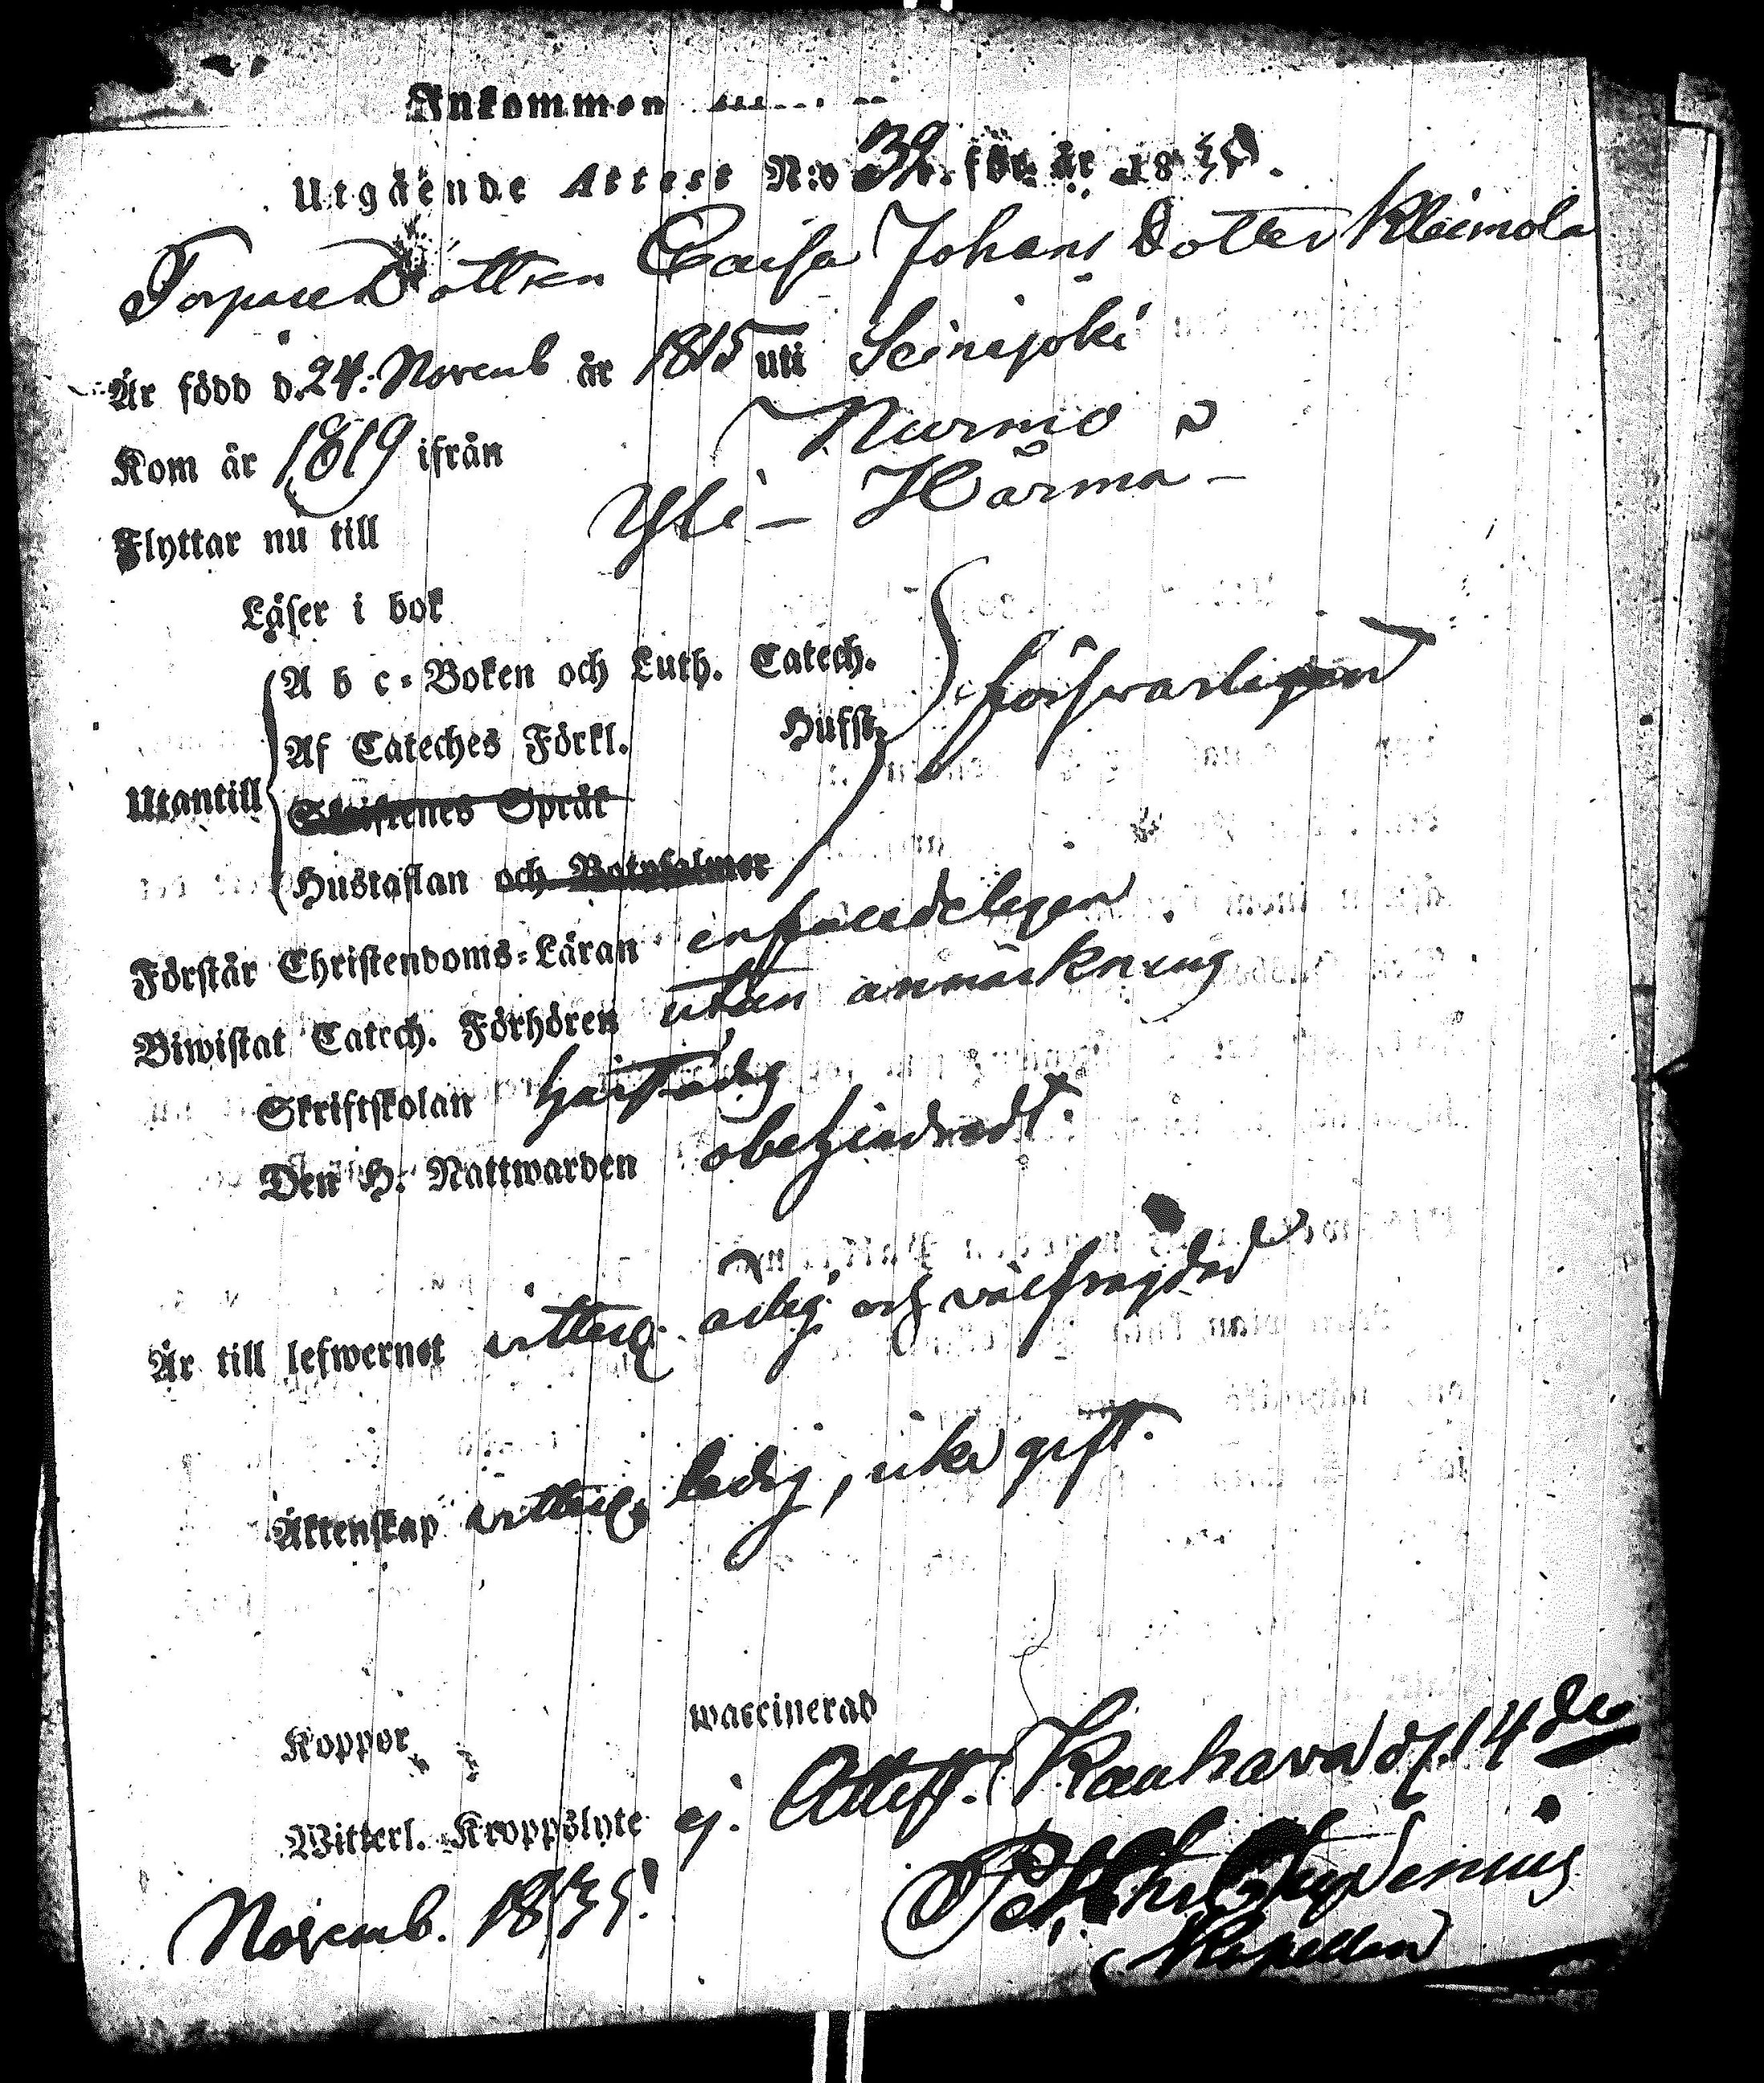 Inkommen
Utgående Attest N:o 32. för år 1835.
Torpare Dottren Caisa Johans Dotter Kleimola
Är född d. 24. Novemb år 1815 uti Seinejoki
Kom år 1819 ifrån Nurmo
Flyttar nu till Yli-Härmä -
Läser i bok
A b c-Boken och Luth. Catech.
Af Cateches Förkl. Hufst. försvarligen
Utantill
Skriftenes Språk
Hustaflan och Botpsalmer
Förstår Christendoms-Läran enfaldeligen
Biwistat Catech. Förhören utan anmärkning
Skriftskolan
Den H. Nattwarden obehindradt.
Är till lefwernet witterl. ärlig och välfrejdad
Äktenskap witterl. ledig, icke gift.
Koppor waccinerad
Witterl. Kroppslyte ej. Attest. Kauhava d. 14de
Novemb. 1835. Chydenius
Kapellan